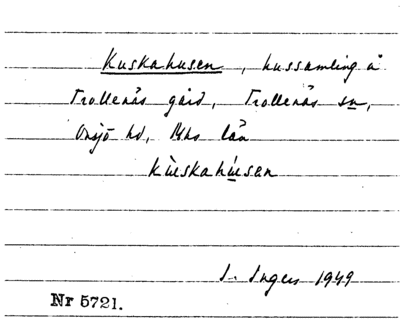 Kuskahusen, hussamling å
Trollenäs gård, Trollenäs sn,
Onsjö hd, Mhs län
kùskahúsen
I. Ingers 1949
Nr 5721.